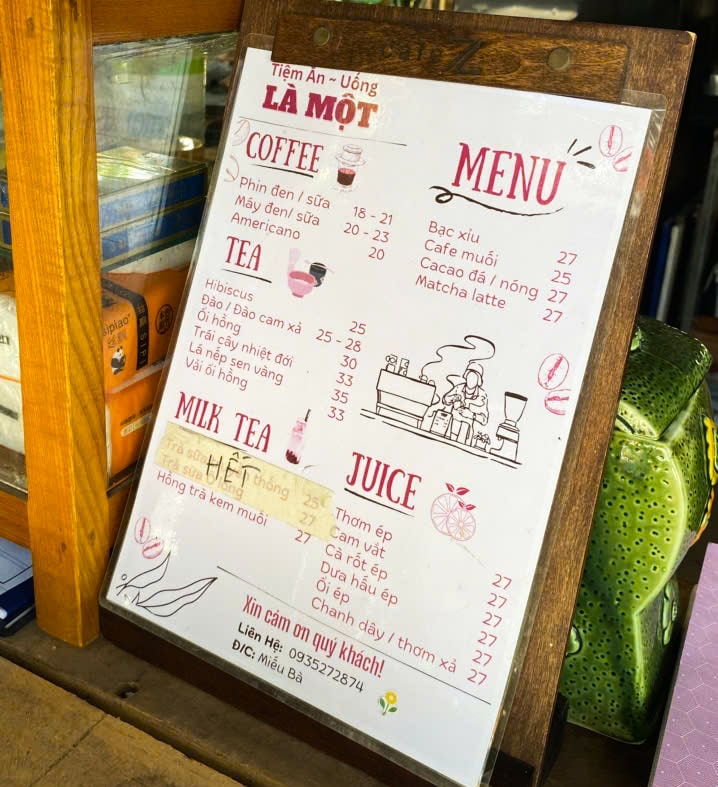 Tiệm Ăn ~ Uống
LÀ MỘT
COFFEE
Phin đen / sữa 18 - 21
Máy đen/ sữa 20 - 23
Americano 20
TEA
Hibiscus 25
Đào / Đào cam xả 25 - 28
Ổi hồng 30
Trái cây nhiệt đới 33
Lá nếp sen vàng 35
Vải ổi hồng 33
MILK TEA
HẾT
Trà sữa thống 25
Trà sữa 27
Hồng trà kem muối 27
MENU
Bạc xỉu 27
Cafe muối 25
Cacao đá / nóng 27
Matcha latte 27
JUICE
Thơm ép 27
Cam vắt 27
Cà rốt ép 27
Dưa hấu ép 27
Ổi ép 27
Chanh dây / thơm xả 27
Xin cảm ơn quý khách!
Liên Hệ: 0935272874
Đ/C: Miếu Bà
sipiao